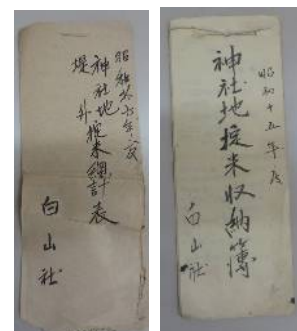 昭和十七年度
神社地掟米總計表
堤外
白山社
昭和十五年度
神社地掟米収納簿
白山社